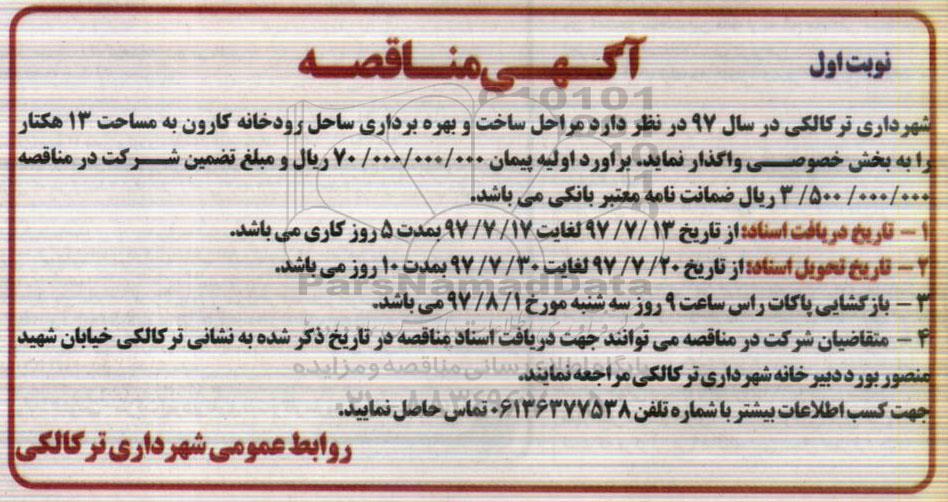 آگهی مناقصه
نوبت اول
شهرداری ترکالکی در سال ۹۷ در نظر دارد مراحل ساخت و بهره برداری ساحل رودخانه کارون به مساحت ۱۳ هکتار
را به بخش خصوصی واگذار نماید. براورد اولیه پیمان ۷۰/۰۰۰/۰۰۰/۰۰۰ ریال و مبلغ تضمین شرکت در مناقصه
۳/۵۰۰/۰۰۰/۰۰۰ ریال ضمانت نامه معتبر بانکی می باشد.
۱ – تاریخ دریافت اسناد: از تاریخ ۹۷/۷/۱۳ لغایت ۹۷/۷/۱۷ بمدت ۵ روز کاری می باشد.
۲ – تاریخ تحویل اسناد: از تاریخ ۹۷/۷/۲۰ لغایت ۹۷/۷/۳۰ بمدت ۱۰ روز می باشد.
۳ – بازگشایی پاکات راس ساعت ۹ روز سه شنبه مورخ ۹۷/۸/۱ می باشد.
۴ – متقاضیان شرکت در مناقصه می توانند جهت دریافت اسناد مناقصه در تاریخ ذکر شده به نشانی ترکالکی خیابان شهید
منصور بورد دبیر خانه شهرداری ترکالکی مراجعه نمایند.
جهت کسب اطلاعات بیشتر با شماره تلفن ۰۶۱۳۶۳۷۷۵۳۸ تماس حاصل نمایید.
روابط عمومی شهرداری ترکالکی
ParsNamadData